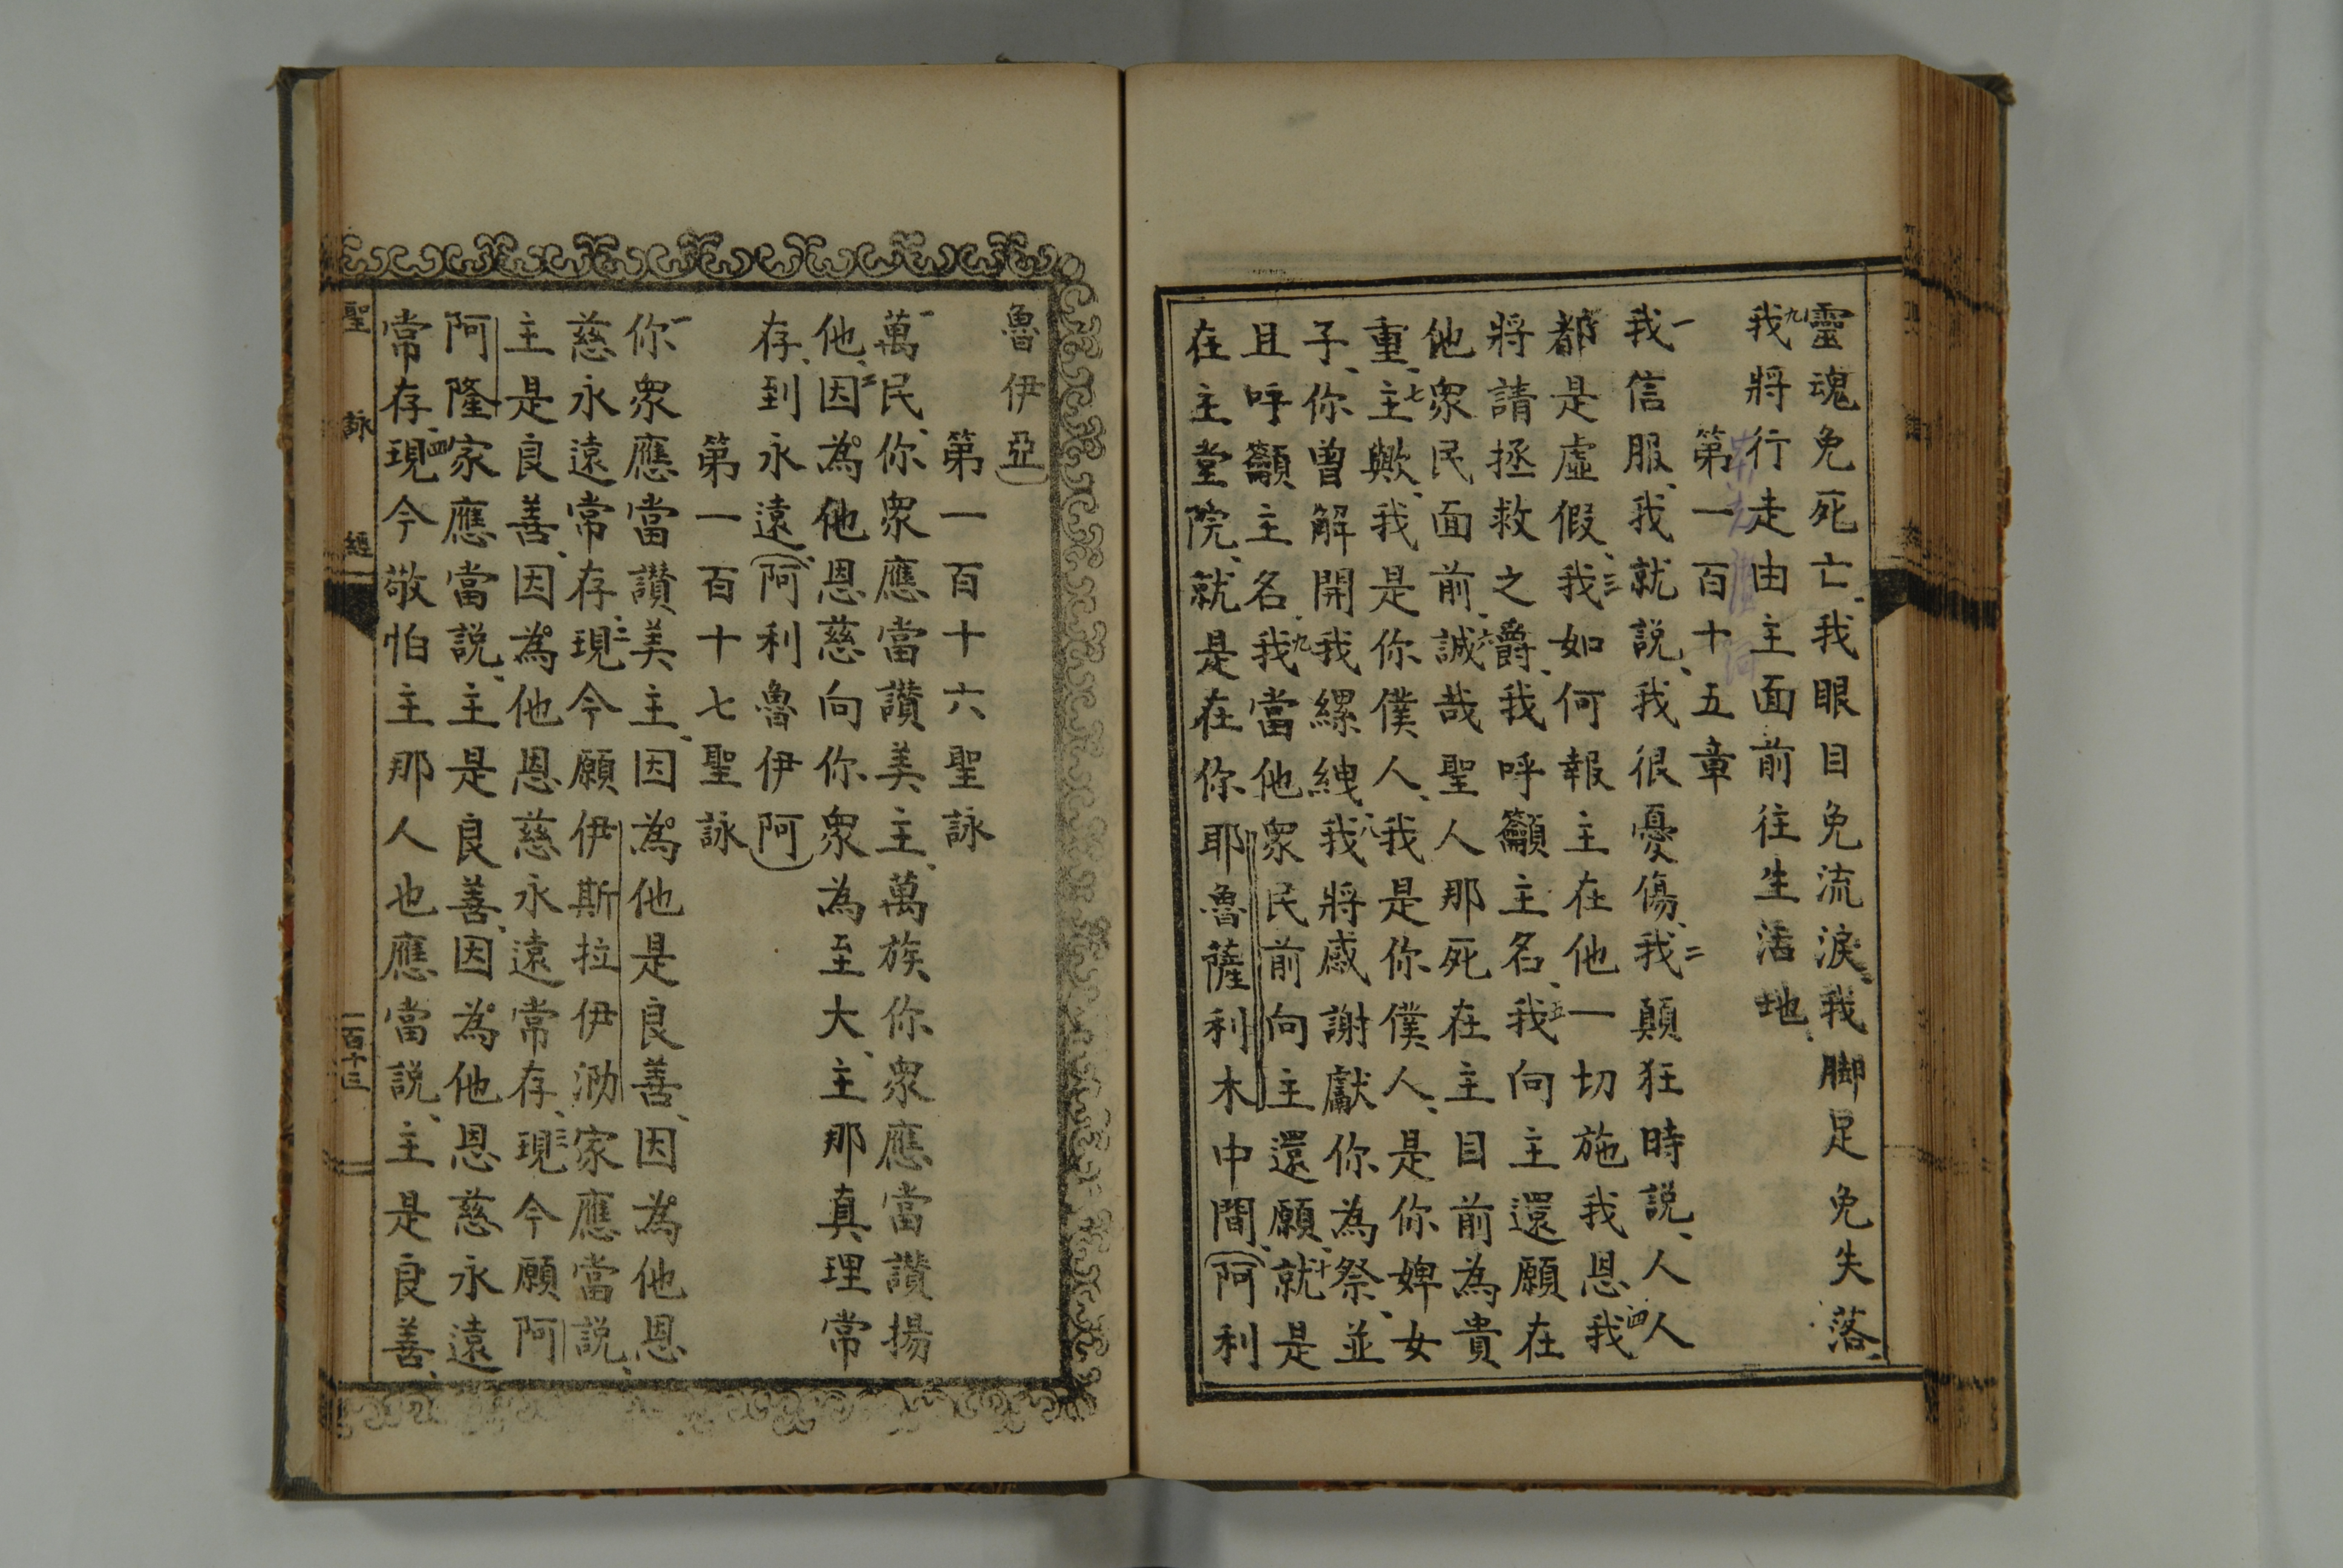 靈魂免死亡、我眼目免流淚、我脚足免失落、
九我將行走由主面前往生活地、
第一百十五章
一我信服、我就説、我很憂傷、二我顛狂時説、人人
都是虛假、三我如何報主在他一切施我恩、四我
將請拯救之爵、我呼籲主名、五我向主還願在
他衆民面前、六誠哉聖人那死在主目前為貴
重、七主歟、我是你僕人、我是你僕人、是你婢女
子、你曾解開我縲絏、八我將感謝獻你為祭、並
且呼籲主名、九我當他衆民前向主還願、十就是
在主堂院、就是在你耶魯薩利木中間、(阿利
魯伊亞)
第一百十六聖詠
一萬民、你衆應當讚美主、萬族、你衆應當讚揚
他、二因為他恩慈向你衆為至大、主那真理常
存、到永遠、(阿利魯伊阿)
第一百十七聖詠
一你衆應當讚美主、因為他是良善、因為他恩
慈永遠常存、二現今願伊斯拉伊泐家應當説、
主是良善、因為他恩慈永遠常存、三現今願阿
阿隆家應當説、主是良善、因為他恩慈永遠
常存、四現今敬怕主那人也應當説、主是良善、
聖詠經
一百十三